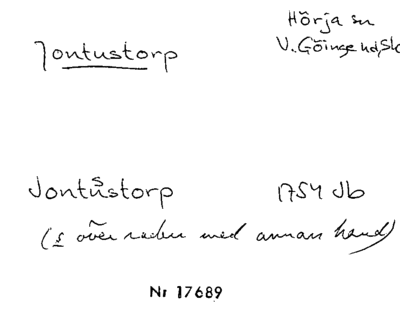 Jontustorp
Hörja sn
V. Göinge hd, Sk
Jontustorp 1754 Jb
(s över raden med annan hand)
Nr 17689